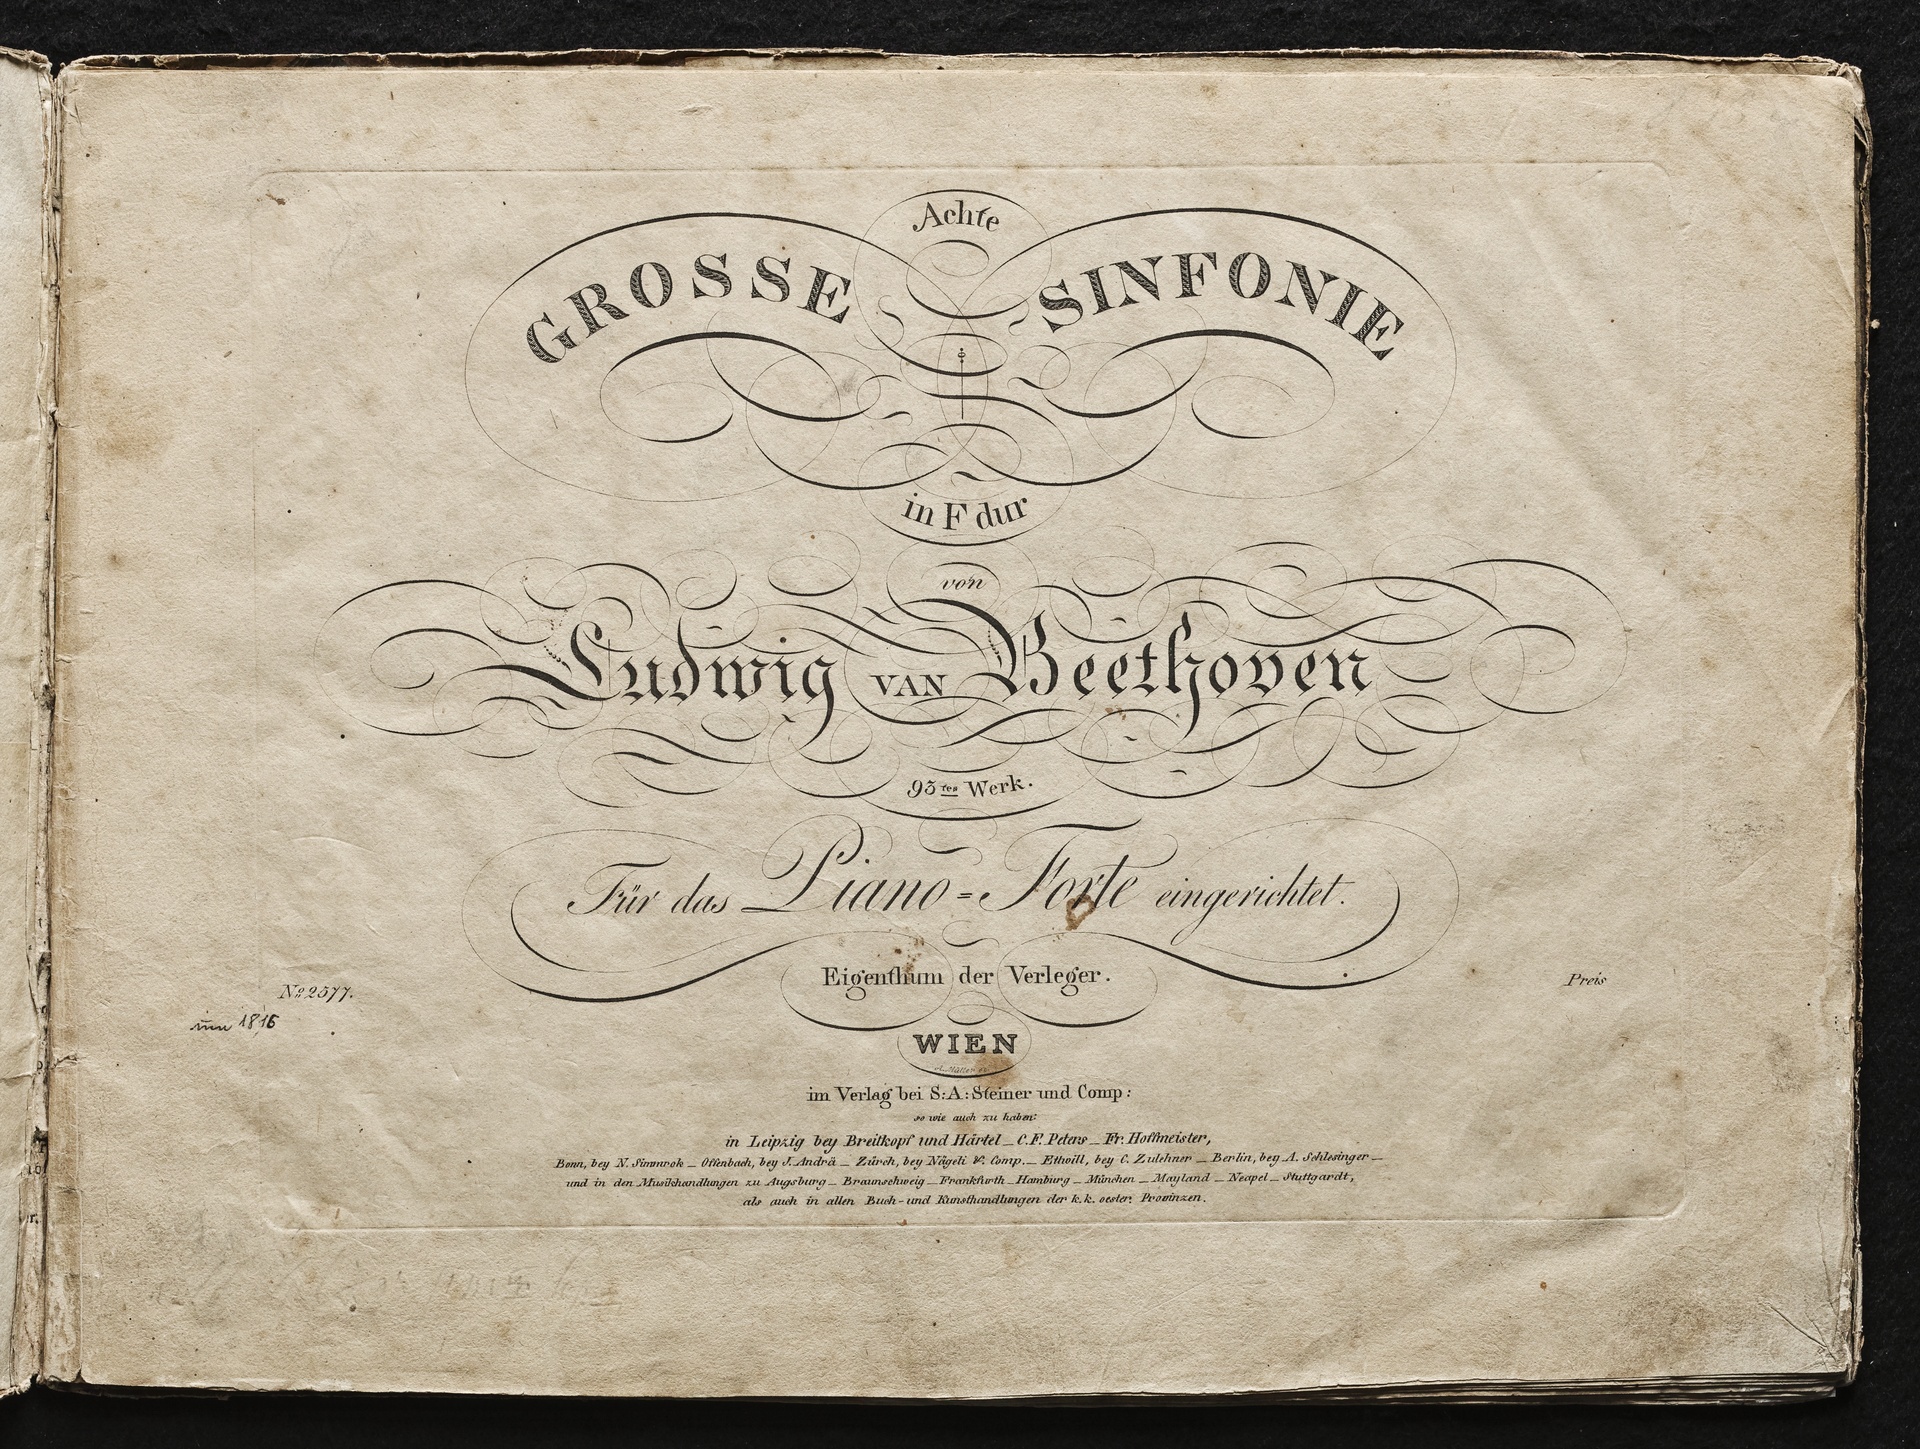 Achte
GROSSE SINFONIE
in F dur
von
Ludwig VAN Beethoven
93tes Werk.
Für das Piano=Forte eingerichtet.
Eigenthum der Verleger.
No 2577. Preis
1816
WIEN
im Verlag bei S:A:Steiner und Comp:
so wie auch zu haben:
in Leipzig bey Breitkopf und Härtel _ C.F. Peters _ Fr. Hoffmeister,
Bonn, bey N. Simmrok _ Offenbach, bey J. Andrä _ Zürch, bey Nägeli & Comp. _ Ettwill, bey C. Zulehner _ Berlin, bey A. Schlesinger _
und in den Musikhandlungen zu Augsburg _ Braunschweig _ Frankfurth _ Hamburg _ München _ Mayland _ Neapel _ Stuttgardt,
als auch in allen Buch- und Kunsthandlungen der k.k. oester. Provinzen.